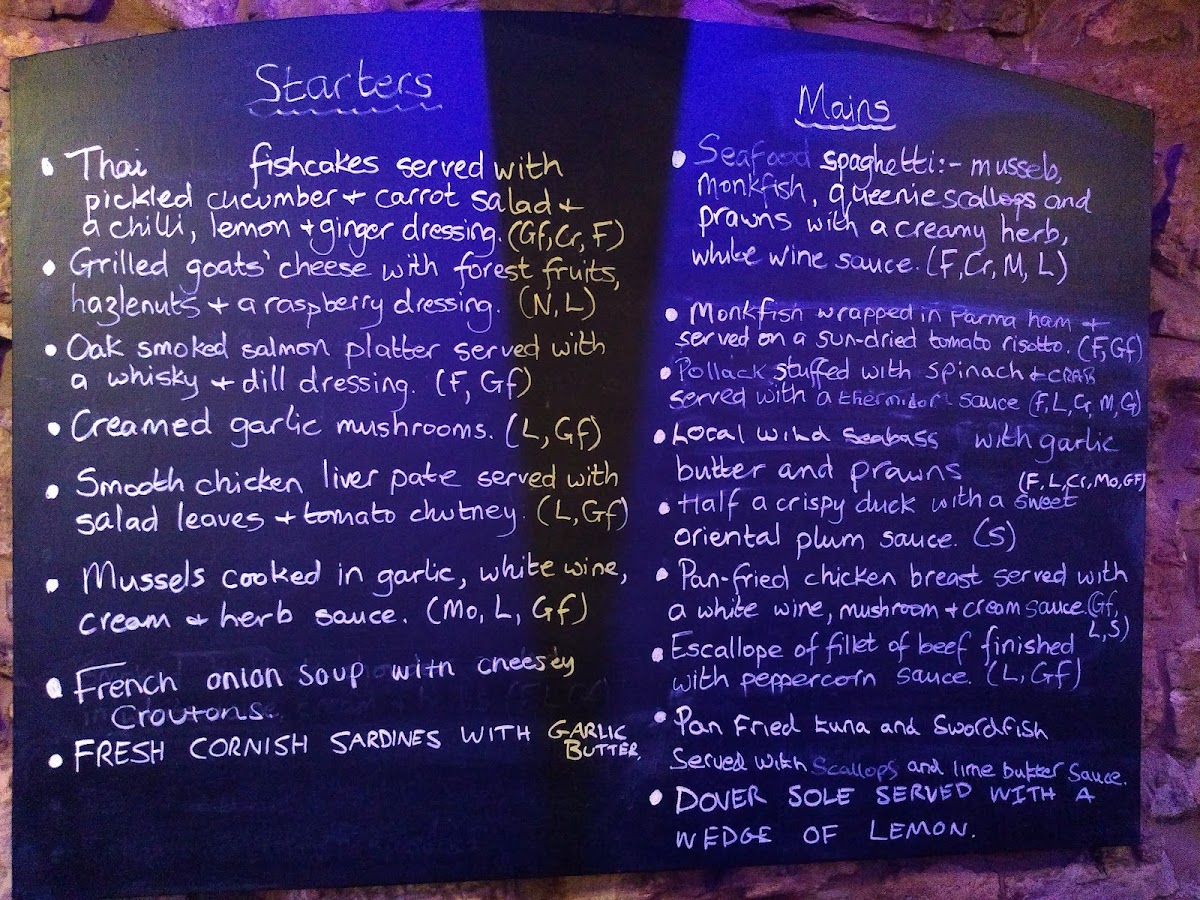 Starters
• Thai fishcakes served with
pickled cucumber + carrot salad +
a chilli, lemon + ginger dressing. (Gf, Cr, F)
• Grilled goats' cheese with forest fruits,
hazlenuts + a raspberry dressing. (N, L)
• Oak smoked salmon platter served with
a whisky + dill dressing. (F, Gf)
• Creamed garlic mushrooms. (L, Gf)
• Smooth chicken liver pate served with
salad leaves + tomato chutney. (L, Gf)
• Mussels cooked in garlic, white wine,
cream + herb sauce. (Mo, L, Gf)
• French onion soup with cheesey
Croutons.
• FRESH CORNISH SARDINES WITH GARLIC
BUTTER.
Mains
• Seafood spaghetti:- mussels,
monkfish, queenie scallops and
prawns with a creamy herb,
white wine sauce. (F, Cr, M, L)
• Monkfish wrapped in Parma ham +
served on a sun-dried tomato risotto. (F, Gf)
• Pollack stuffed with spinach + CRAB
served with a thermidor sauce (F, L, Cr, M, G)
• Local wild seabass with garlic
butter and prawns (F, L, Cr, Mo, GF)
• Half a crispy duck with a sweet
oriental plum sauce. (S)
• Pan-fried chicken breast served with
a white wine, mushroom + cream sauce. (Gf,
L, S)
• Escallope of fillet of beef finished
with peppercorn sauce. (L, Gf)
• Pan Fried tuna and Swordfish
Served with Scallops and lime butter Sauce.
• DOVER SOLE SERVED WITH A
WEDGE OF LEMON.